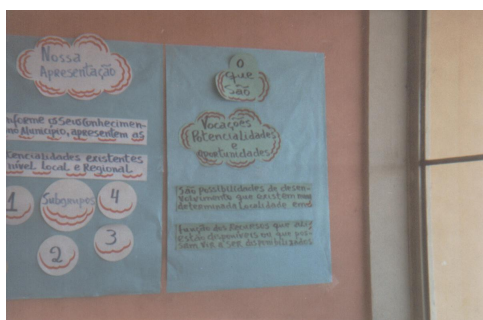 Nossa
Apresentação
nforme os seus conhecimen-
no Município, apresentem as
tencialidades existentes
nível local e Regional.
1
Subgrupos
4
2
3
O
que
São
Vocações
Potencialidades
e
oportunidades
São possibilidades de desen-
volvimento que existem numa
determinada localidade em
função dos recursos que
estão disponíveis ou que pos-
sam vir a ser disponibilizados